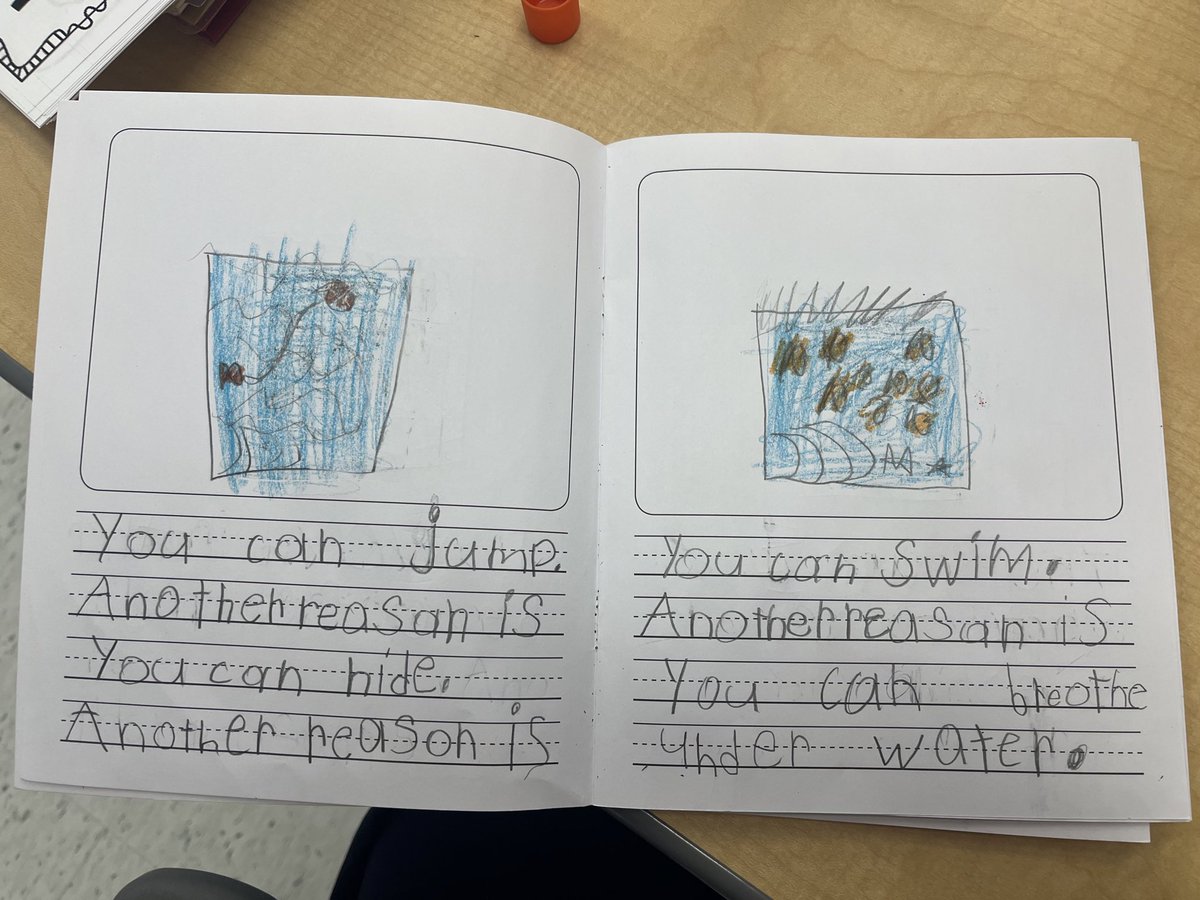 You can jump.
Another reason is
You can hide.
Another reason is
You can swim.
Another reason is
You can breathe
under water.